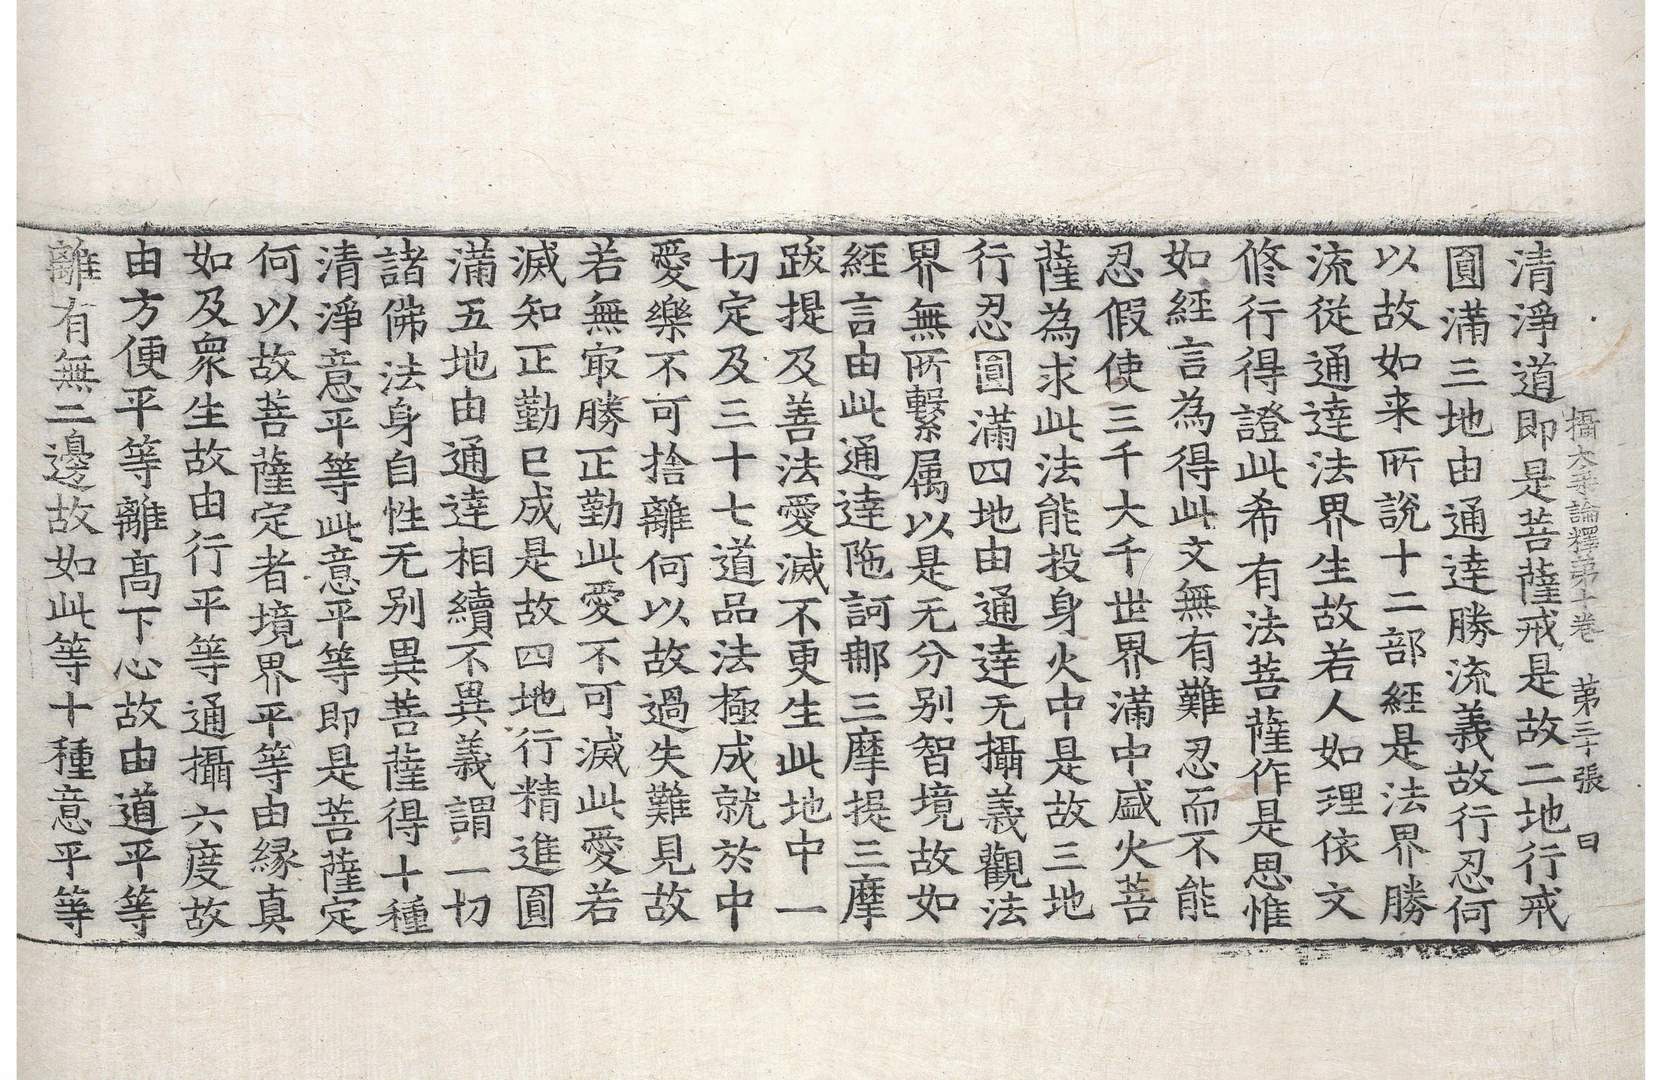 攝大乘論釋第十卷　第三十張　日
清淨道即是菩薩戒是故二地行戒
圓滿三地由通達勝流義故行忍何
以故如来所說十二部經是法界勝
流從通達法界生故若人如理依文
修行得證此希有法菩薩作是思惟
如經言為得此文無有難忍而不能
忍假使三千大千世界滿中盛火菩
薩為求此法能投身火中是故三地
行忍圓滿四地由通達无攝義觀法
界無所繫属以是无分别智境故如
經言由此通達陁訶那三摩提三摩
跋提及善法愛滅不更生此地中一
切定及三十七道品法極成就於中
愛樂不可捨離何以故過失難見故
若無㝡勝正勤此愛不可滅此愛若
滅知正勤已成是故四地行精進圓
滿五地由通達相續不異義謂一切
諸佛法身自性无别異菩薩得十種
清淨意平等此意平等即是菩薩定
何以故菩薩定者境界平等由緣真
如及衆生故由行平等通攝六度故
由方便平等離高下心故由道平等
離有無二邊故如此等十種意平等